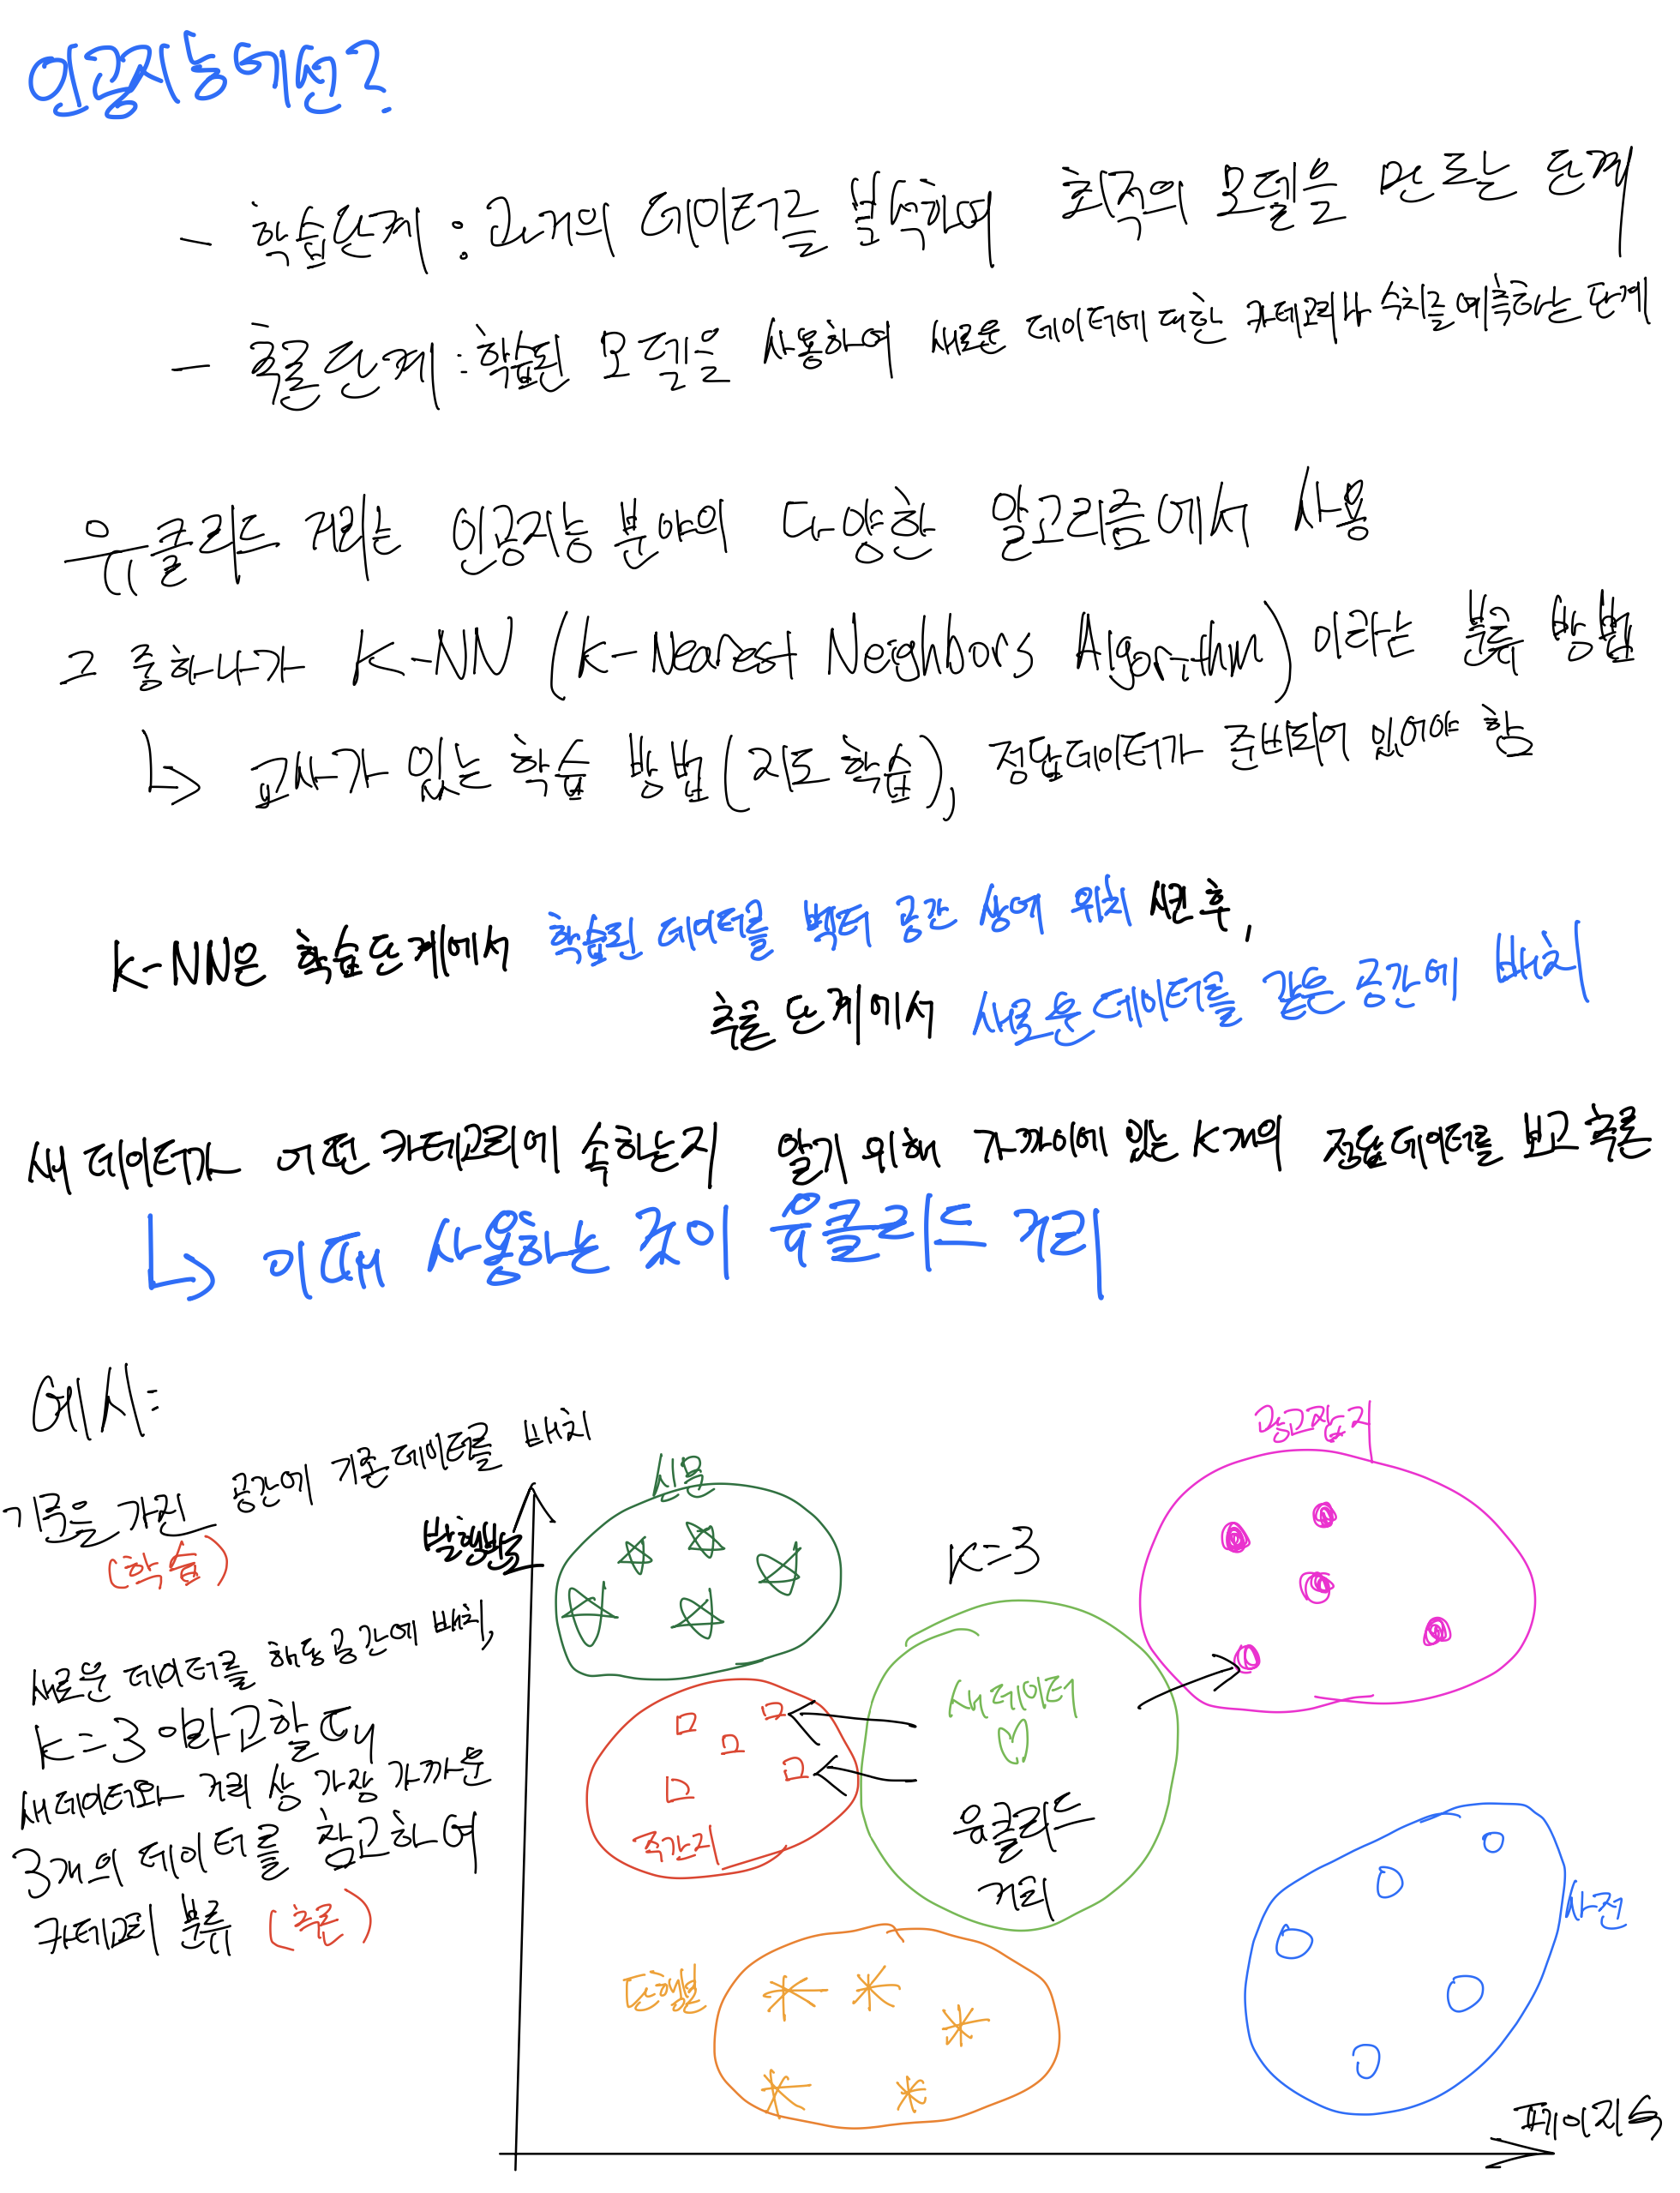 인공지능에선?
- 학습단계 : 과거의 데이터를 분석하여 최적의 모델을 만드는 단계
- 추론단계 : 학습된 모델을 사용하여 새로운 데이터에 대한 카테고리나 수치를 예측하는 단계
유클리드 거리는 인공지능 분야의 다양한 알고리즘에서 사용
그 중 하나가 K-NN (K-Nearest Neighbors Algorithm) 이라는 분류 방법
↳ 교사가 있는 학습 방법(지도 학습), 정답데이터가 준비되어 있어야 함
K-NN은 학습단계에서 학습된 데이터를 벡터 공간 상에 위치 시킨 후,
추론 단계에서 새로운 데이터를 같은 공간에 배치
새 데이터가 어떤 카테고리에 속하는지 알기 위해 가까이에 있는 K개의 정답데이터를 보고 추론
↳ 이때 사용하는 것이 유클리드 거리
예시:
기준을 가진 공간에 기존데이터를 배치
(학습)
새로운 데이터를 해당 공간에 배치,
K=3 이라고 할 때
새 데이터와 거리 상 가장 가까운
3개의 데이터를 참고하여
카테고리 분류 (추론)
발행빈도
신문
K=3
광고잡지
새 데이터
유클리드
거리
주간지
단행본
사전
페이지수